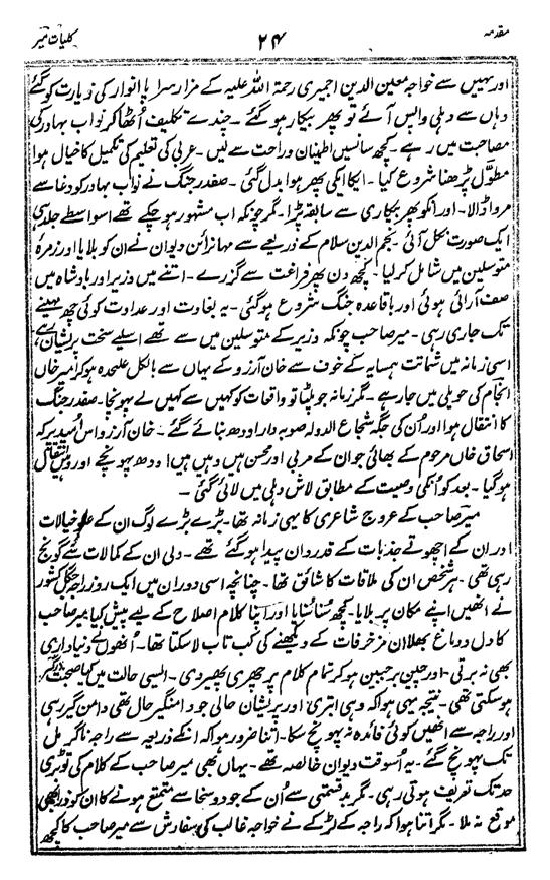 مقدمہ
۲۴
کلیات میر
اور یہیں سے خواجہ معین الدین اجمیری رحمۃ اللہ علیہ کے مزار سراپا انوار کی زیارت کو گئے
وہاں سے دہلی واپس آئے تو پھر بیکار ہو گئے ۔ چندے تکلیف اُٹھا کر نواب بہادر کی
مصاحبت میں رہے ۔ کچھ سانسیں اطمینان و راحت سے لیں ۔ عربی کی تعلیم کی تکمیل کا خیال ہوا
مطوّل پڑھنا شروع کیا ۔ ایکا ایکی پھر ہوا بدل گئی ۔ صفدر جنگ نے نواب بہادر کو دغا سے
مروا ڈالا ۔ اور انکو پھر بیکاری سے سابقہ پڑا ۔ مگر چونکہ اب مشہور ہو چکے تھے اسواسطے جلد ہی
ایک صورت نکل آئی ۔ نجم الدین سلام کے ذریعے سے مہانرائن دیوان نے ان کو بلایا اور زمرۂ
متوسلین میں شامل کر لیا ۔ کچھ دن پھر فراغت سے گزرے ۔ اتنے میں وزیر اور بادشاہ میں
صف آرائی ہوئی اور باقاعدہ جنگ شروع ہو گئی ۔ یہ بغاوت اور عداوت کوئی چھ مہینے
تک جاری رہی ۔ میر صاحب چونکہ وزیر کے متوسلین میں سے تھے اسلیے سخت پریشان رہے
اسی زمانہ میں شماتت ہمسایہ کے خوف سے خان آرزو کے یہاں سے بالکل علٰحدہ ہو کر امیر خاں
انجام کی حویلی میں جا رہے ۔ مگر زمانہ جو پلٹا تو واقعات کو کہیں سے کہیں لے پہونچا ۔ صفدر جنگ
کا انتقال ہوا اور اُن کی جگہ شجاع الدولہ صوبہ دار اودھ بنائے گئے ۔ خان آرزو اس اُمید پر کہ
اسحاق خاں مرحوم کے بھائی جو ان کے مربی اور محسن ہیں وہیں ہیں اودھ پہونچے اور وہیں انتقال
ہو گیا ۔ بعد کو اُنکی وصیت کے مطابق لاش دہلی میں لائی گئی ۔
میر صاحب کے عروج شاعری کا یہی زمانہ تھا ۔ بڑے بڑے لوگ ان کے علو خیالات
اور ان کے اچھوتے جذبات کے قدردان پیدا ہو گئے تھے ۔ دلی ان کے کمالات سے گونج
رہی تھی ۔ ہر شخص ان کی ملاقات کا شائق تھا ۔ چنانچہ اسی دوران میں ایک روز راجہ جگل کشور
نے انھیں اپنے مکان پر بلایا ۔ کچھ سُنا سُنایا اور اپنا کلام اصلاح کے لیے پیش کیا میر صاحب
کا دل و دماغ بھلا ان مزخرفات کے دیکھنے کی کب تاب لا سکتا تھا ۔ اُنھوں نے دنیا داری
بھی نہ برتی ۔ اور چین بر جبیں ہو کر تمام کلام پر چھری پھیر دی ۔ ایسی حالت میں کیا صحبت برآر
ہو سکتی تھی ۔ نتیجہ یہی ہوا کہ وہی ابتری اور پریشان حالی جو دامنگیر حال تھی دامن گیر رہی
اور راجہ سے انھیں کوئی فائدہ نہ پہونچ سکا ۔ اتنا ضرور ہوا کہ انکے ذریعہ سے راجہ ناگر مل
تک پہونچ گئے ۔ یہ اُسوقت دیوان خالصہ تھے ۔ یہاں بھی میر صاحب کے کلام کی تو بڑی
حد تک تعریف ہوتی رہی ۔ مگر بدقسمتی سے اُن کے جود و سخا سے متمتع ہونے کا ان کو ذرا بھی
موقع نہ ملا ۔ مگر اتنا ہوا کہ راجہ کے لڑکے نے خواجہ غالب کی سفارش سے میر صاحب کا کچھ